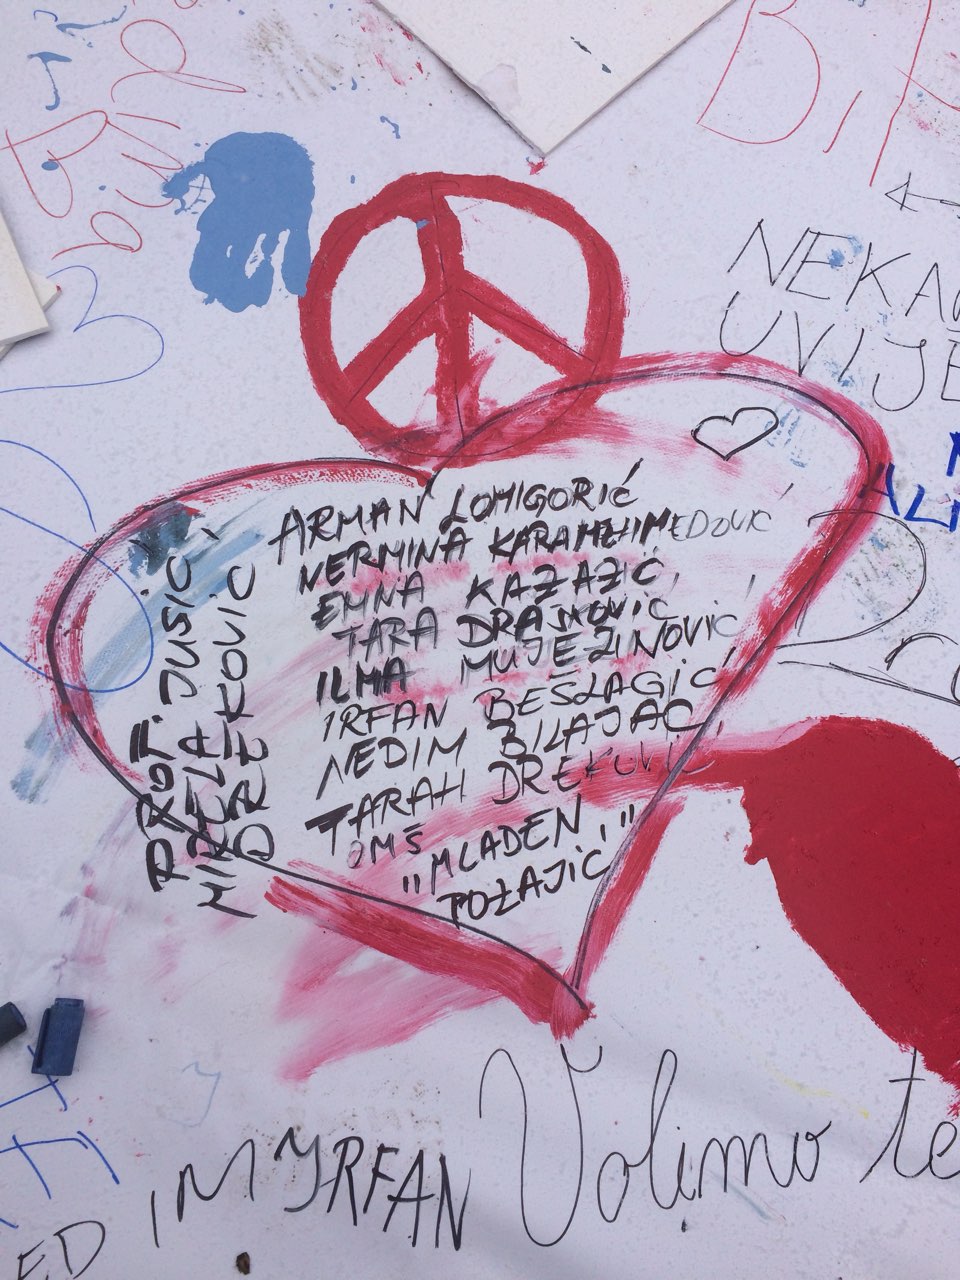 BiH
NEKA
UVIJE
ALI
ARMAN LOMIGORIĆ
NERMINA KARAMEHMEDOVIĆ
EMNA KAZAZIĆ,
TARA DRAŠKOVIĆ,
ILMA MUJEZINOVIĆ
IRFAN BEŠLAGIĆ
NEDIM BILAJAC
TARAH DREKOVIĆ
OMŠ
"MLADEN
POZAJIĆ"
PROF. JUSIĆ,
MIRELA
DREKOVIĆ
Volimo te
EDIM YRFAN